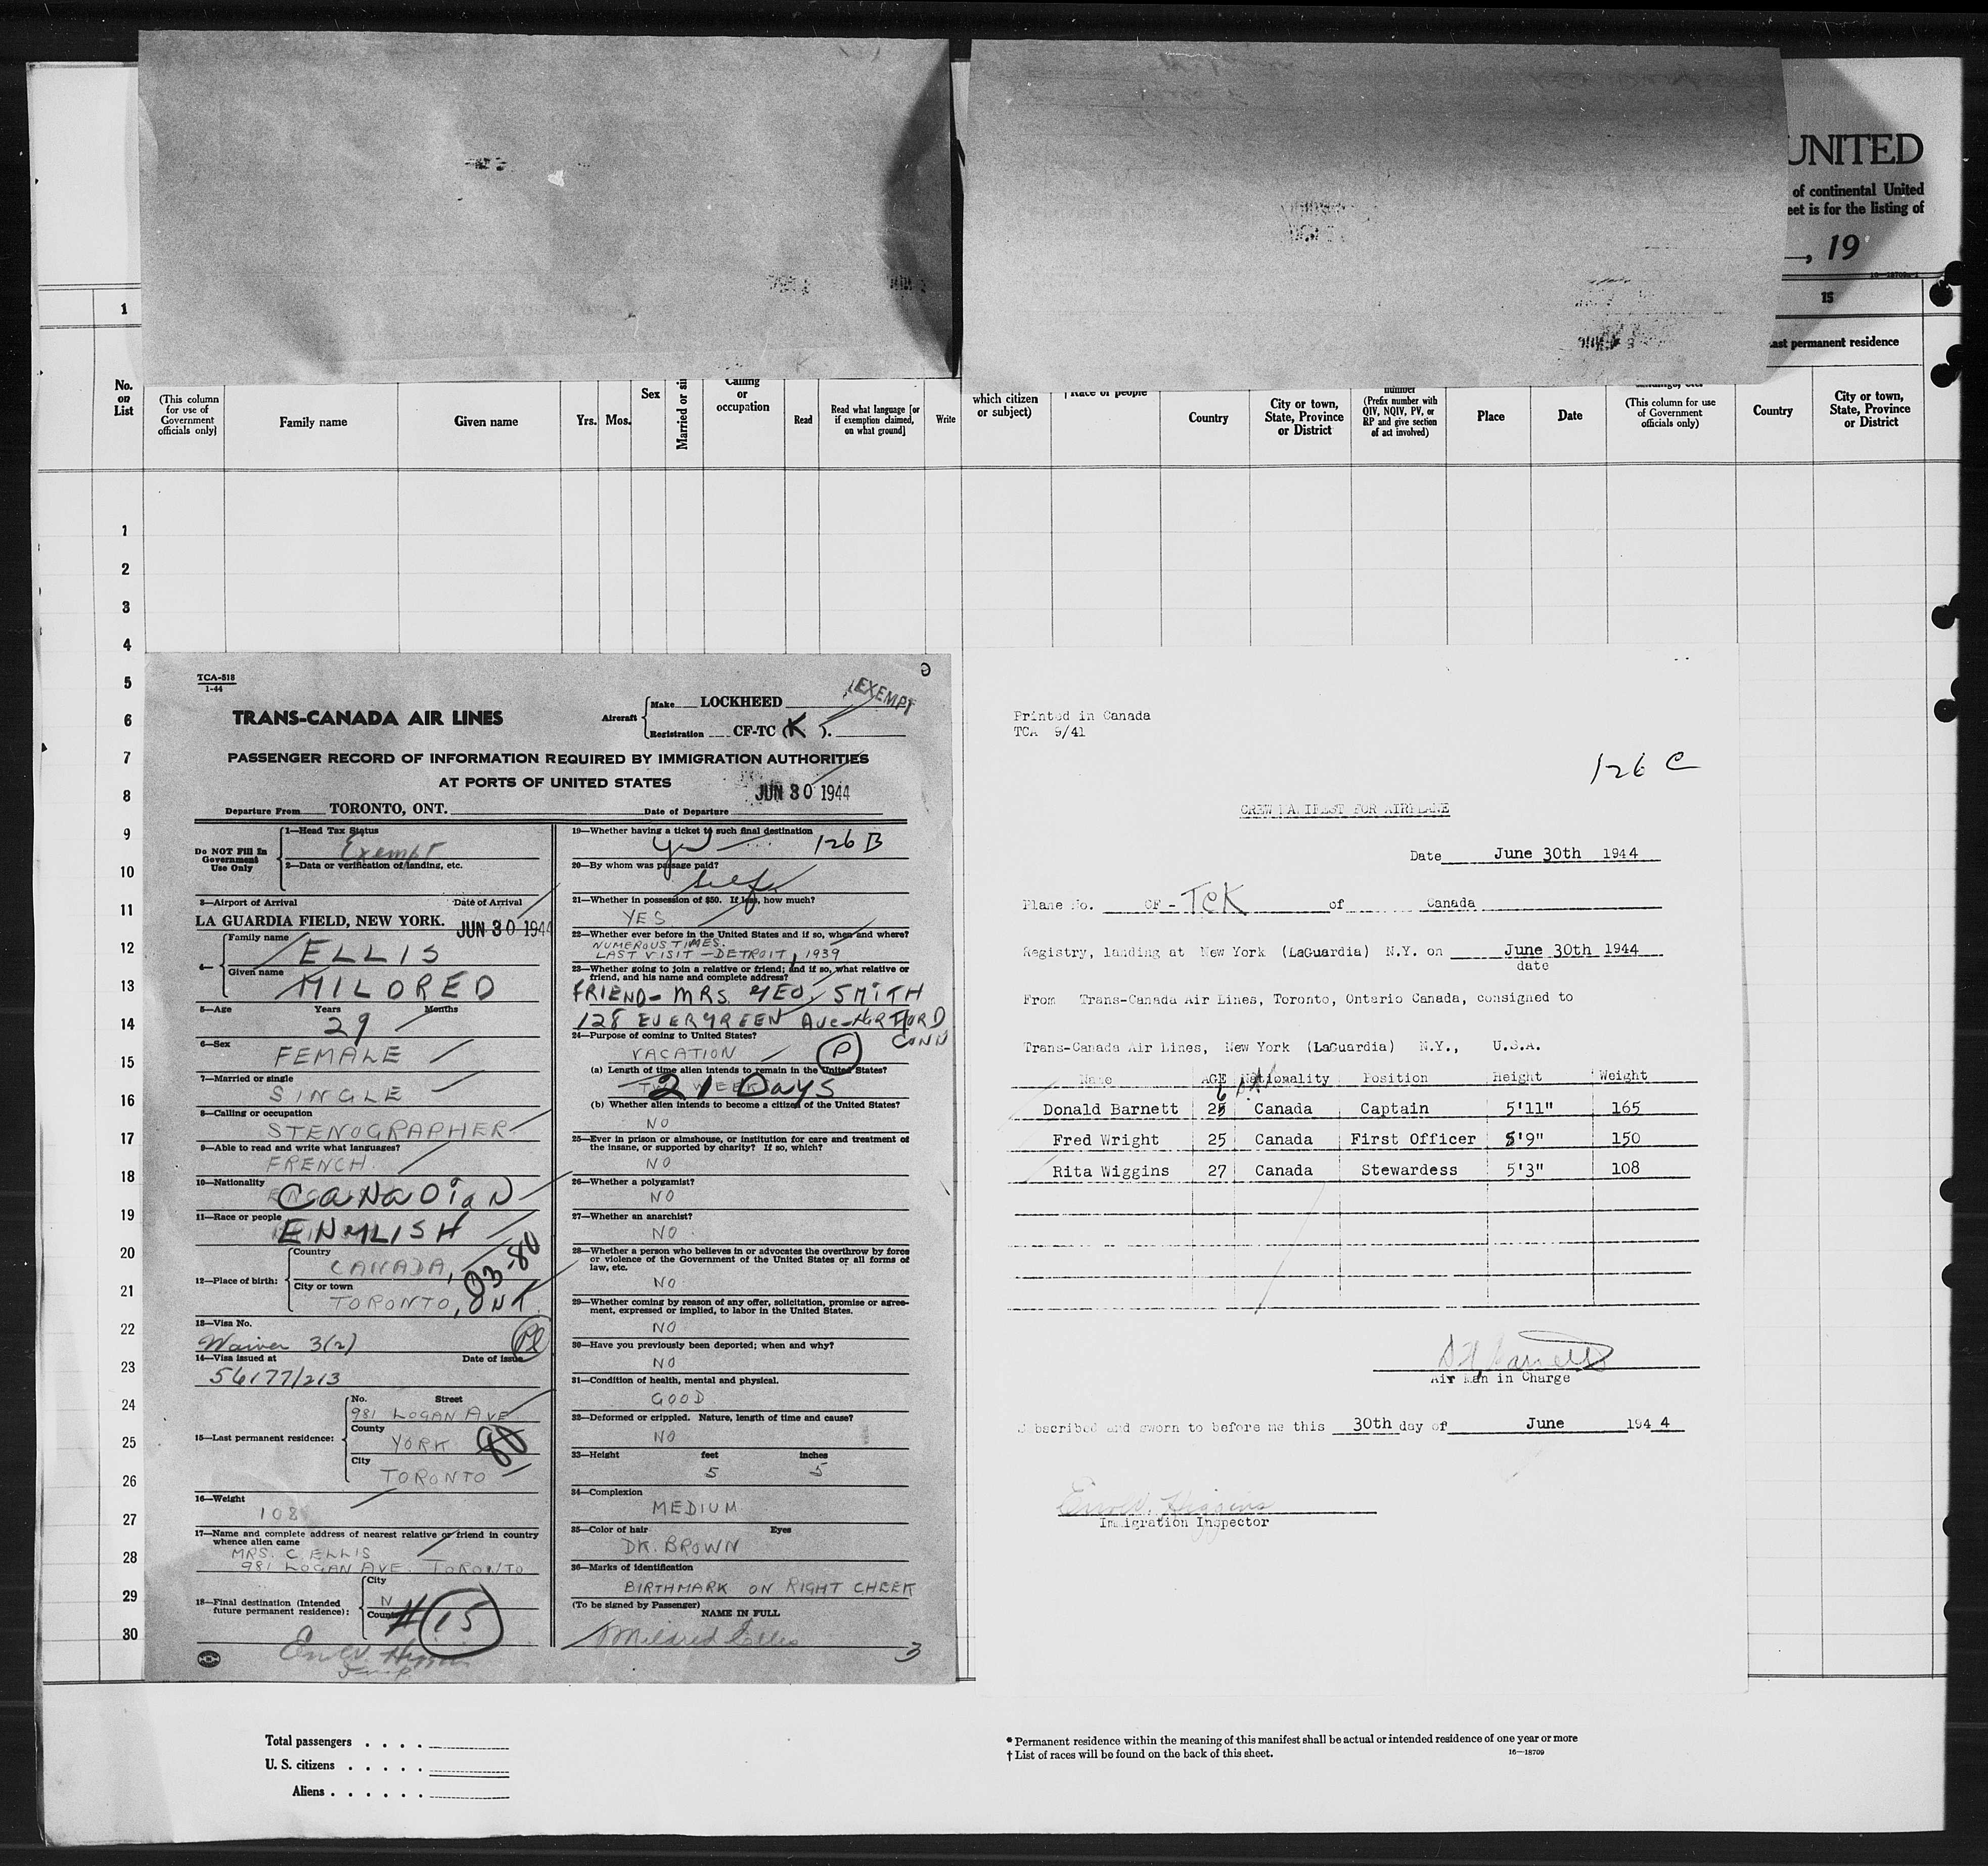 UNITED
of continental United
eet is for the listing of
, 19
1
15
ast permanent residence
No. on List
(This column for use of Government officials only)
Family name
Given name
Yrs.
Mos.
Sex
Married or si
Calling or occupation
Read
Read what language [or if exemption claimed, on what ground]
Write
which citizen or subject)
†Race or people
Country
City or town, State, Province or District
number (Prefix number with QIV, NQIV, PV, or RP and give section of act involved)
Place
Date
(This column for use of Government officials only)
Country
City or town, State, Province or District
1
2
3
4
5
6
7
8
9
10
11
12
13
14
15
16
17
18
19
20
21
22
23
24
25
26
27
28
29
30
TCA-518
1-44
TRANS-CANADA AIR LINES
Aircraft
Make LOCKHEED
Registration CF-TC (K).
EXEMPT
PASSENGER RECORD OF INFORMATION REQUIRED BY IMMIGRATION AUTHORITIES
AT PORTS OF UNITED STATES
JUN 30 1944
Departure From TORONTO, ONT. Date of Departure
Do NOT Fill In Government Use Only
1—Head Tax Status
Exempt
2—Data or verification of landing, etc.
3—Airport of Arrival Date of Arrival
LA GUARDIA FIELD, NEW YORK. JUN 30 1944
4—
Family name ELLIS
Given name MILDRED
5—Age Years Months
29
6—Sex
FEMALE
7—Married or single
SINGLE
8—Calling or occupation
STENOGRAPHER
9—Able to read and write what languages?
FRENCH
10—Nationality
CANADIAN
11—Race or people
ENGLISH
12—Place of birth:
Country
CANADA,
City or town
TORONTO, ONT.
03-80
13—Visa No.
Waiver 3(2)
14—Visa issued at Date of issue
56177/213
15—Last permanent residence:
No. Street
981 LOGAN AVE
County
YORK
80
City
TORONTO
16—Weight
108
17—Name and complete address of nearest relative or friend in country
whence alien came
MRS. C. ELLIS
981 LOGAN AVE. TORONTO
18—Final destination (Intended future permanent residence):
City
N
County
#15
19—Whether having a ticket to such final destination
yes 126 B
20—By whom was passage paid?
self
21—Whether in possession of $50. If less, how much?
YES
22—Whether ever before in the United States and if so, when and where?
NUMEROUS TIMES.
LAST VISIT — DETROIT, 1939
23—Whether going to join a relative or friend; and if so, what relative or
friend, and his name and complete address?
FRIEND - MRS. GEO. SMITH
128 EVERGREEN AVE - HARTFORD
CONN
24—Purpose of coming to United States?
VACATION P
(a) Length of time alien intends to remain in the United States?
TWO WEEKS
21 Days
(b) Whether alien intends to become a citizen of the United States?
NO
25—Ever in prison or almshouse, or institution for care and treatment of
the insane, or supported by charity? If so, which?
NO
26—Whether a polygamist?
NO
27—Whether an anarchist?
NO
28—Whether a person who believes in or advocates the overthrow by force
or violence of the Government of the United States or all forms of
law, etc.
NO
29—Whether coming by reason of any offer, solicitation, promise or agree-
ment, expressed or implied, to labor in the United States.
NO
30—Have you previously been deported; when and why?
NO
31—Condition of health, mental and physical.
GOOD
32—Deformed or crippled. Nature, length of time and cause?
NO
33—Height feet inches
5 5
34—Complexion
MEDIUM
35—Color of hair Eyes
DK. BROWN
36—Marks of identification
BIRTHMARK ON RIGHT CHEEK
(To be signed by Passenger) NAME IN FULL
Mildred Ellis
3
Printed in Canada
TCA 9/41
126 C
CREW MANIFEST FOR AIRPLANE
Date June 30th 1944
Plane No. CF - TCK of Canada
Registry, landing at New York (LaGuardia) N.Y. on June 30th 1944
date
From Trans-Canada Air Lines, Toronto, Ontario Canada, consigned to
Trans-Canada Air Lines, New York (LaGuardia) N.Y., U.S.A.
Name AGE Nationality Position Height Weight
Donald Barnett 26 Canada Captain 5'11" 165
Fred Wright 25 Canada First Officer 5'9" 150
Rita Wiggins 27 Canada Stewardess 5'3" 108
Air Man in Charge
Subscribed and sworn to before me this 30th day of June 1944
Immigration Inspector
Total passengers
U. S. citizens
Aliens
* Permanent residence within the meaning of this manifest shall be actual or intended residence of one year or more
† List of races will be found on the back of this sheet. 16—18709